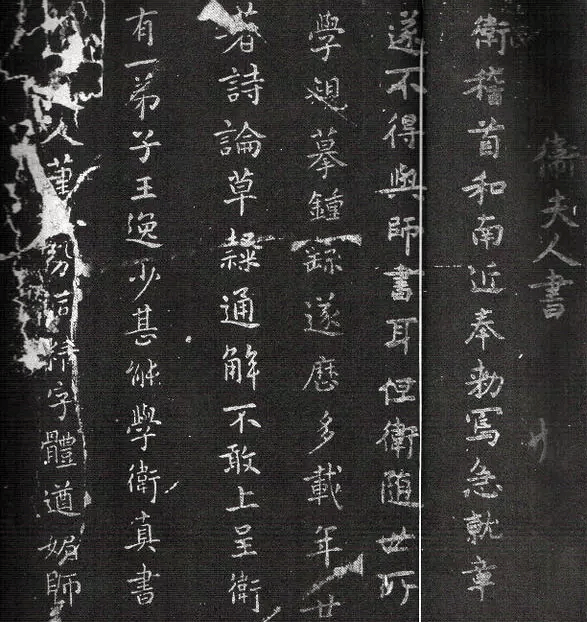 衛夫人書
衛稽首和南近奉勑寫急就章
遂不得與師書耳但衛隨世所
學規摹鍾繇遂歷多載年廿
著詩論草隸通解不敢上呈衛
有一弟子王逸少甚能學衛真書
人 字體遒媚師